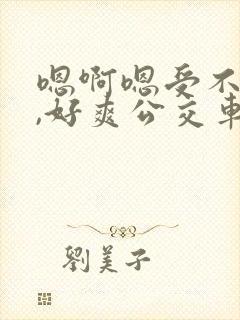 嗯啊嗯受不
,好爽公交車
劉美子